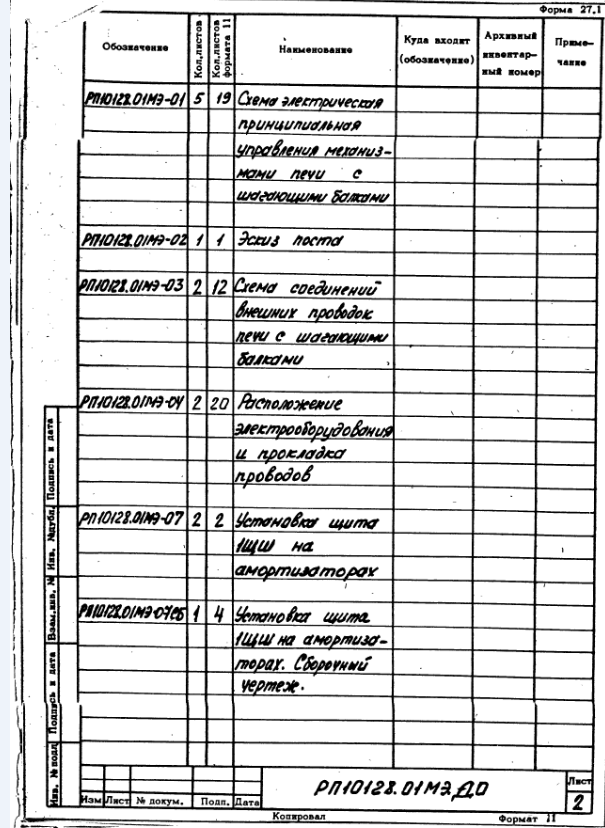 Форма 27.1
Обозначение Кол.листов Кол.листов формата 11 Наименование Куда входит (обозначение) Архивный инвентарный номер Примечание
РП10128.01МЭ-01 5 19 Схема электрическая
принципиальная
управления механиз-
мами печи с
шагающими балками
РП10128.01МЭ-02 1 1 Эскиз поста
РП10128.01МЭ-03 2 12 Схема соединений
внешних проводок
печи с шагающими
балками
РП10128.01МЭ-04 2 20 Расположение
электрооборудования
и прокладка
проводов
РП10128.01МЭ-07 2 2 Установка щита
1ЩШ на
амортизаторах
РП10128.01МЭ-07СБ 1 4 Установка щита
1ЩШ на амортиза-
торах. Сборочный
чертеж.
Инв. № подл. Подпись и дата Взам.инв. № Инв. №дубл. Подпись и дата
РП10128.01МЭ.ДО
Лист
2
Изм Лист № докум. Подп. Дата
Копировал Формат 11